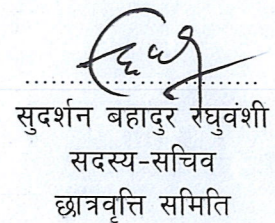 सुदर्शन बहादुर रघुवंशी
सदस्य-सचिव
छात्रवृत्ति समिति